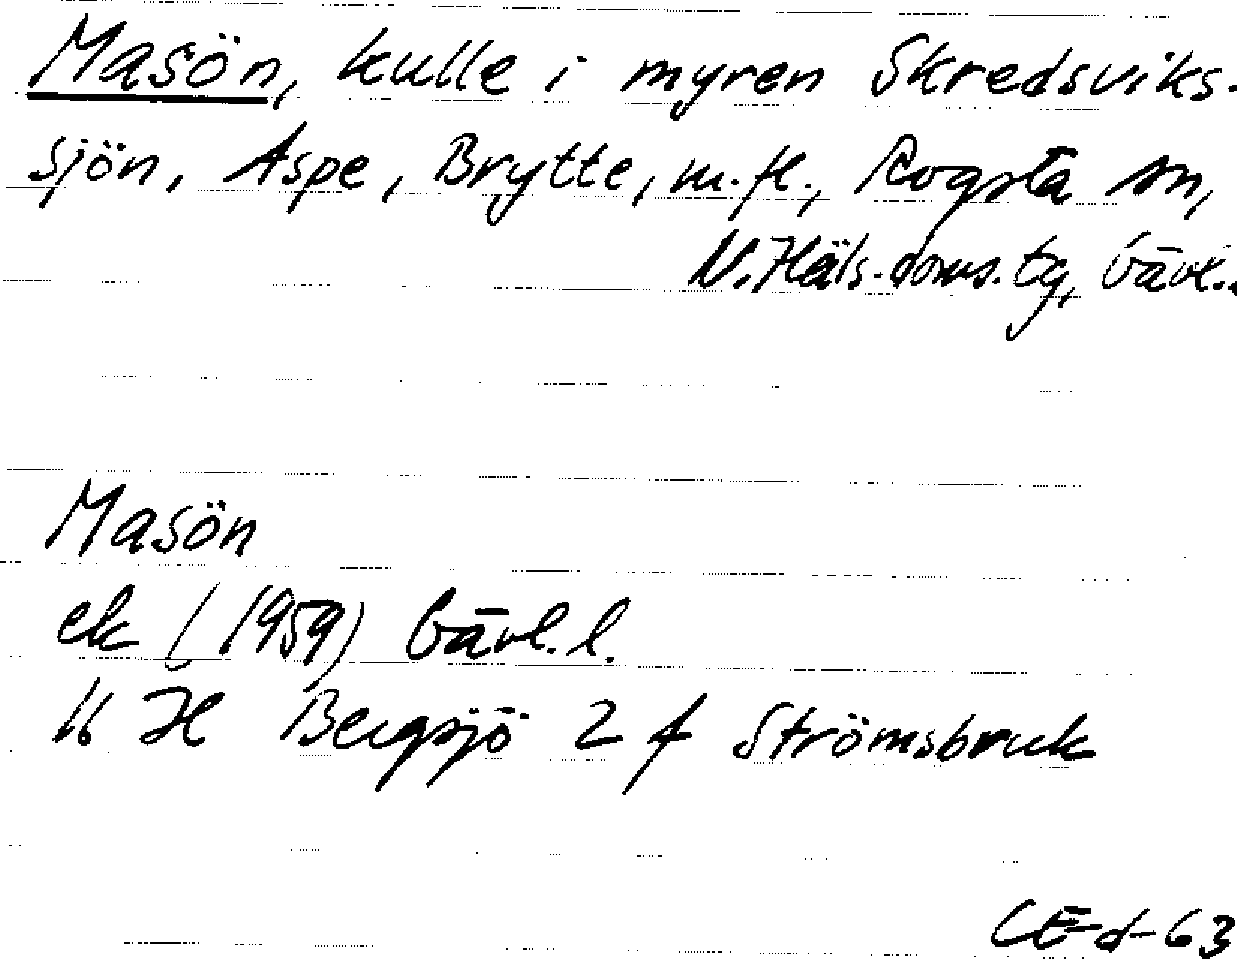 Masön, kulle i myren Skredsviks-
sjön, Aspe, Brytte, m.fl., Rogsta sn,
N. Häls. doms. tg, Gävl.
Masön
ek (1959) Gävl. l.
16 H Bergsjö 2 f Strömsbruk
CE-d-63